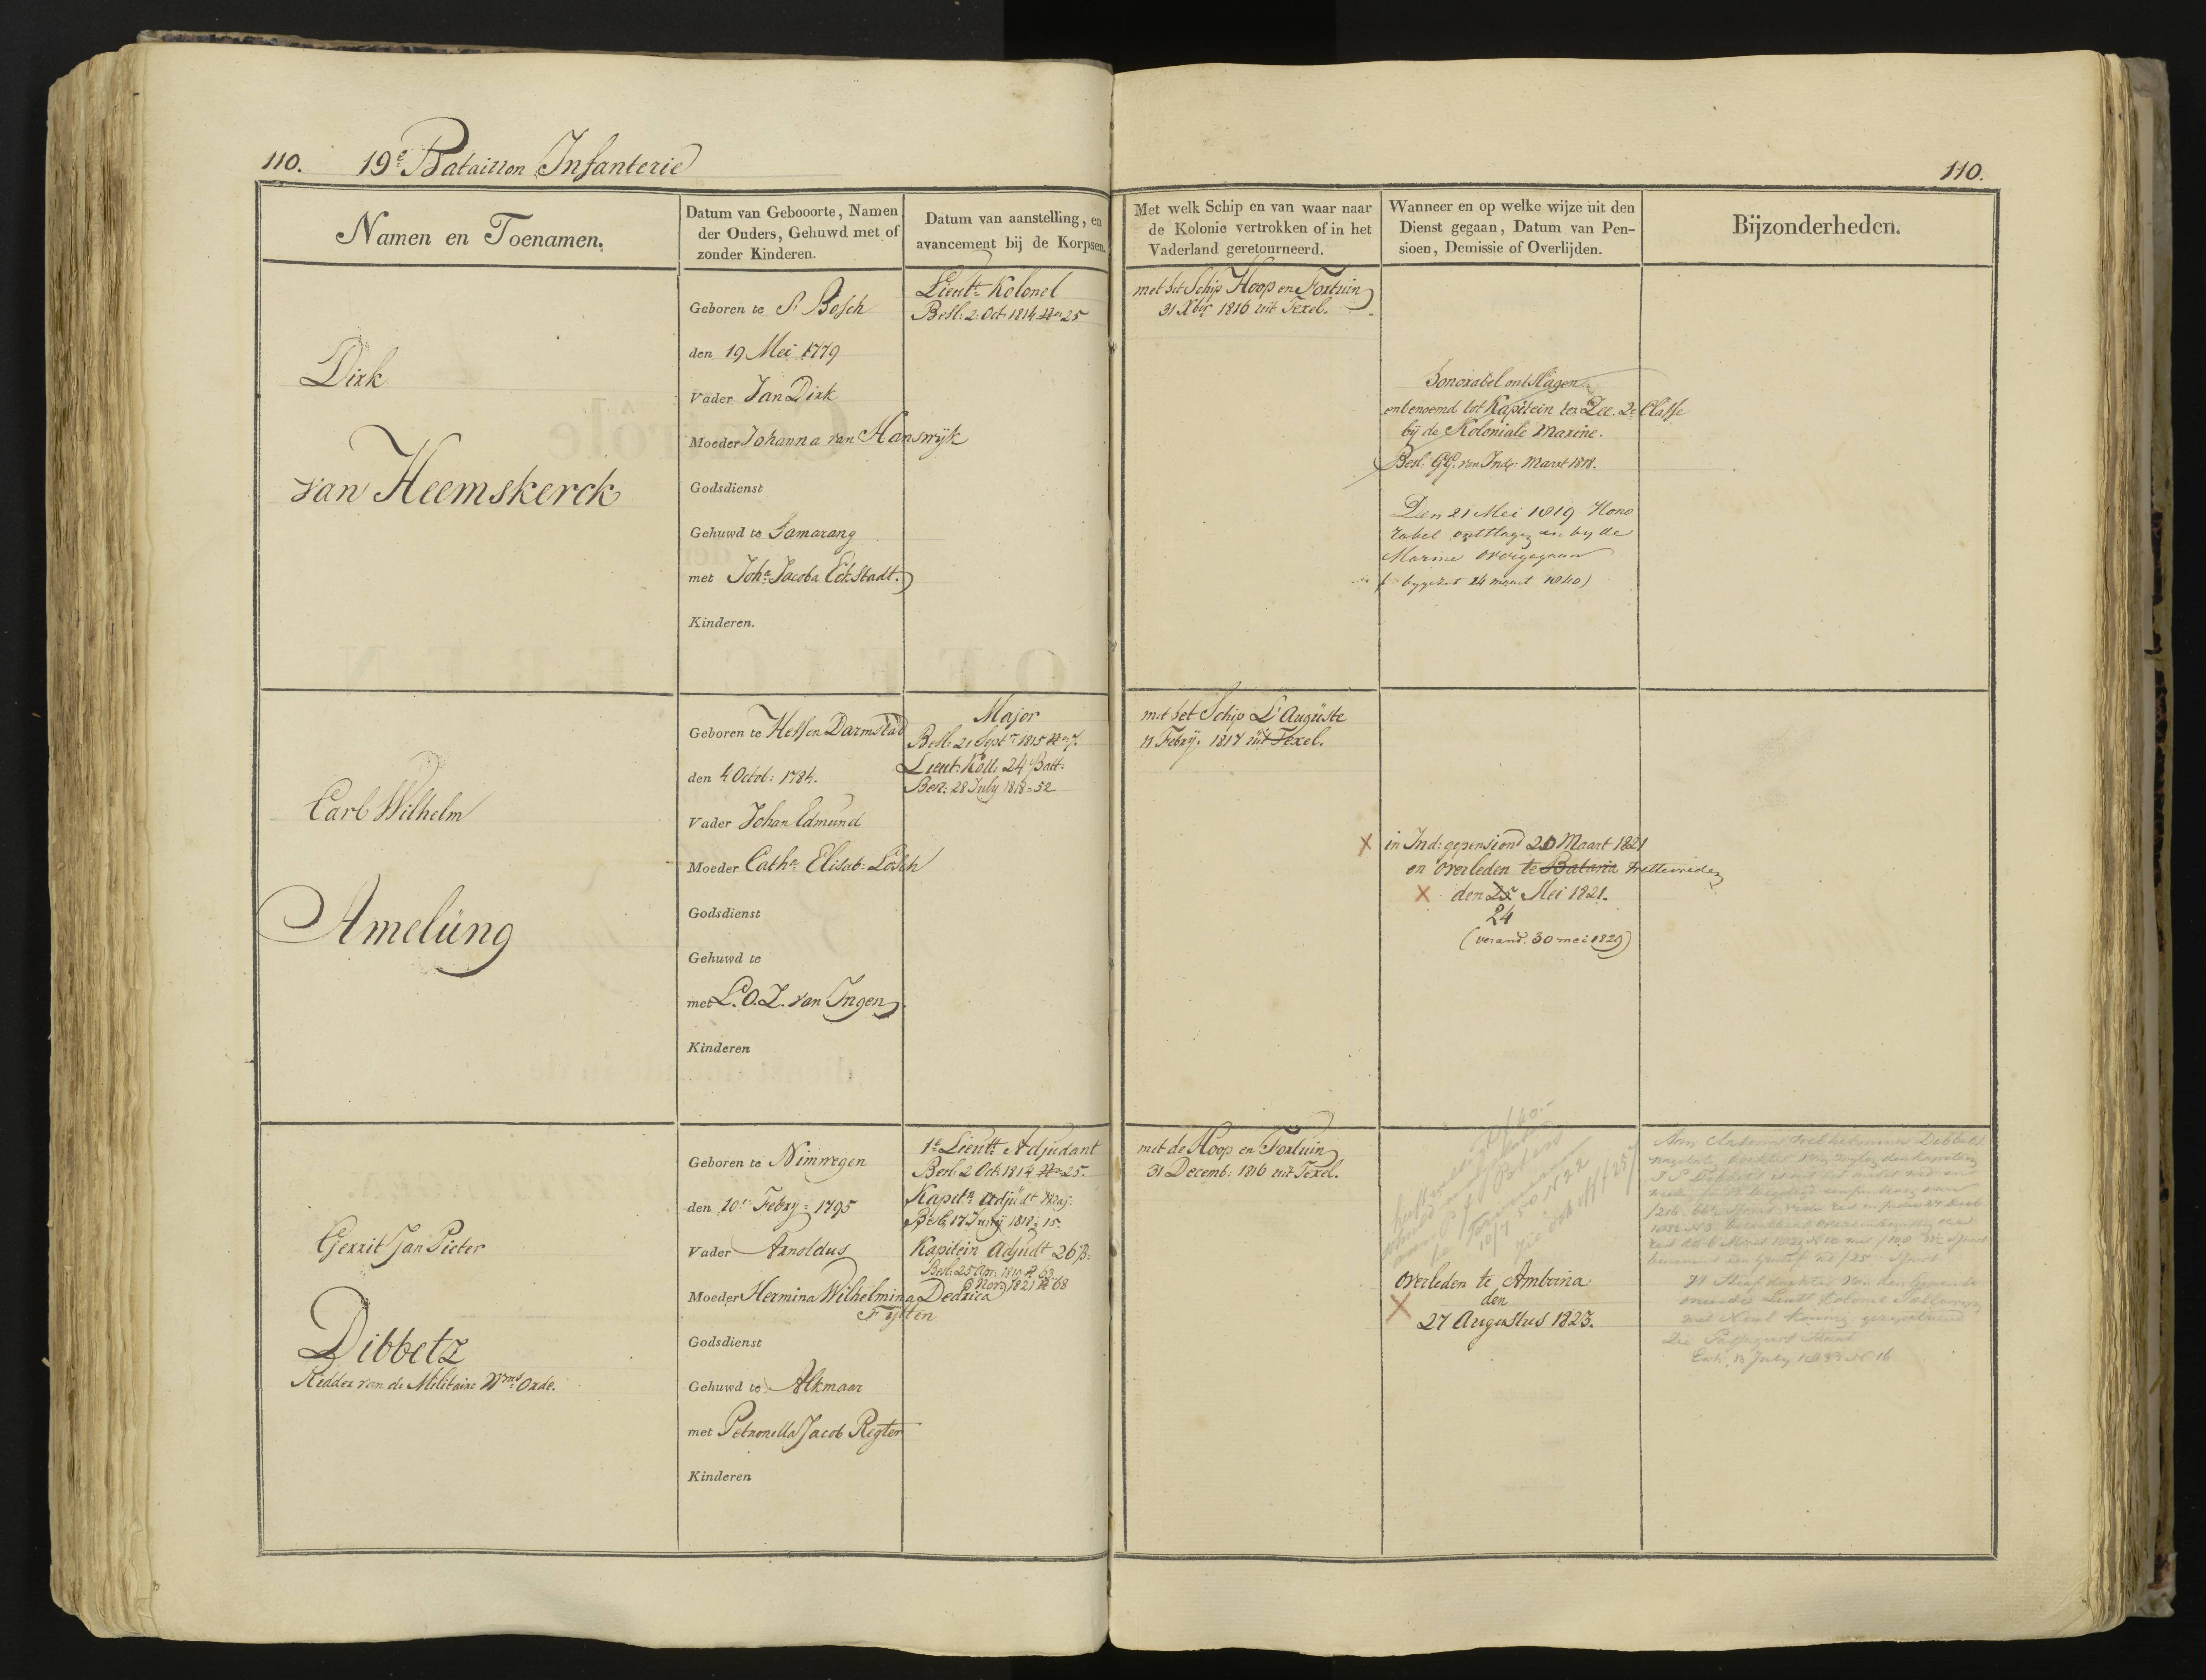 110. 19e Bataillon Infanterie
110.
Namen en Toenamen.
Datum van Gebooorte, Namen
der Ouders, Gehuwd met of
zonder Kinderen.
Datum van aanstelling, en
avancement bij de Korpsen.
Met welk Schip en van waar naar
de Kolonie vertrokken of in het
Vaderland geretourneerd.
Wanneer en op welke wijze uit den
Dienst gegaan, Datum van Pen-
sioen, Demissie of Overlijden.
Bijzonderheden.
Dirk
van Heemskerck
Geboren te S. Bosch
den 19 Mei 1779
Vader Jan Dirk
Moeder Johanna van Hanswijk
Godsdienst
Gehuwd te Samarang
met Joha. Jacoba Eckstadt.
Kinderen.
Lieutt. Kolonel
Besl: 2 Oct. 1814 No 25
met het Schip Hoop en Fortuin
31 Xber 1816 uit Texel.
Honorabel ontslagen
en benoemd tot Kapitein ter Zee. 2e Classe
bij de Koloniale Marine.
Besl. GG. van Inde. Maart 1818.
Den 21 Mei 1819 Hono
rabel ontslagen en by de
Marine overgegaan
24 maart 1840)
Carl Wilhelm
Amelüng
Geboren te Hessen Darmstad
den 4 Octob: 1784.
Vader Johan Edmund
Moeder Catha. Elisab: Losch
Godsdienst
Gehuwd te
met L. O. Z. van Ingen.
Kinderen
Major
Besl. 21 Septr. 1815 No 7.
Lieut. Koll. 24 Batt:
Besl: 28 July 1818 = 52
met het Schip L'Auguste
11 Febry. 1817 uit Texel.
X in Ind: gepensiond 20 Maart 1821
en overleden te Batavia Weltevreden
X den 25 Mei 1821.
24
(verand. 30 mei 1829)
Gerrit Jan Pieter
Dibbetz
Ridder van de Militaire Wms. Orde.
Geboren te Nimwegen
den 10e Febry = 1795
Vader Arnoldus
Moeder Hermina Wilhelmina Dedrica
Fijtten
Godsdienst
Gehuwd te Alkmaar
met Petronella Jacob Rigter
Kinderen
1e Lieutt. Adjudant
Besl. 2 Oct. 1814 No 25.
Kapitn. Adjudt Maj:
Besl. 17 Juny 1818 = 15.
Kapitein Adjudt 26 B:
Besl. 25 Apr. 1819 No 63
6 Nov 1821 No 68
met de Hoop en Fortuin
31 Decemb: 1816 uit Texel.
overleden te Amboina
den
X 27 Augustus 1823.